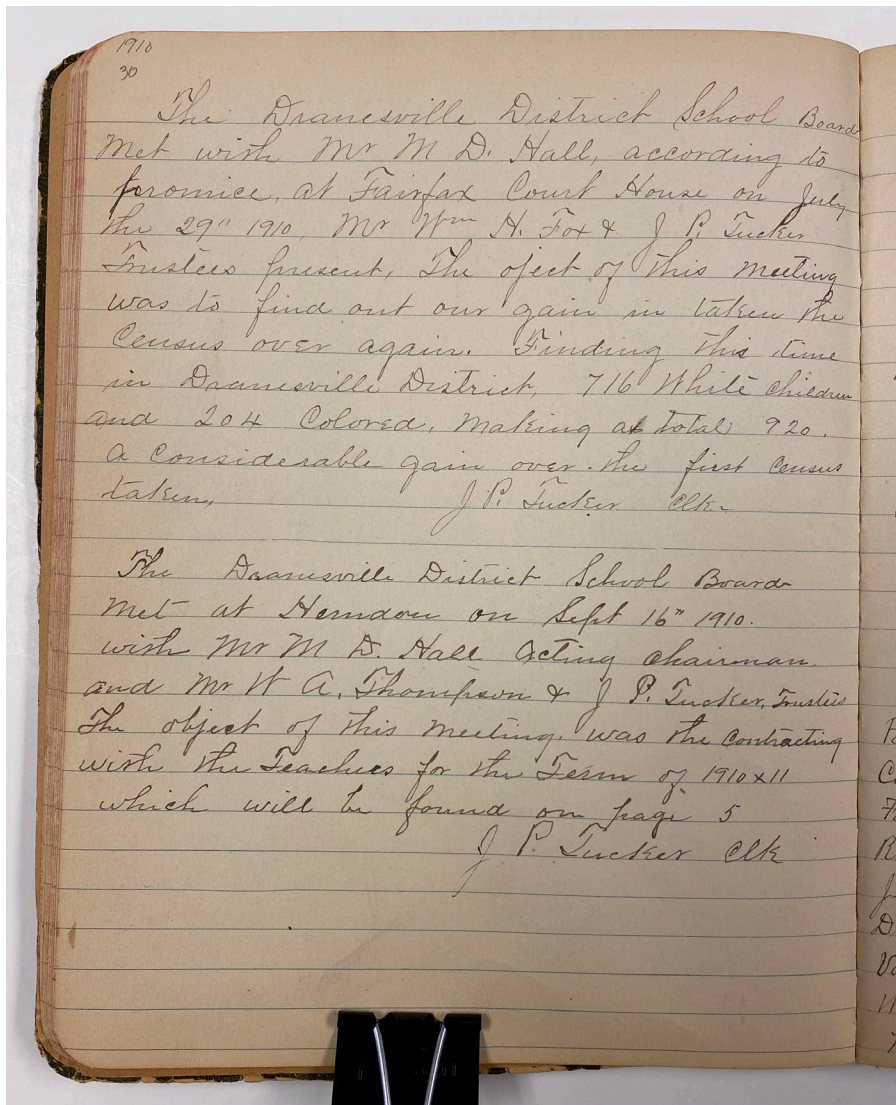 1910
30
The Dranesville District School Board
Met with Mr M D. Hall, according to
promice, at Fairfax Court House on July
the 29" 1910, Mr Wm H. Fox & J P. Tucker
Trustees present, The oject of this meeting
was to find out our gain in taken the
Census over again. Finding this time
in Dranesville District, 716 White children
and 204 Colored, Making a total 920.
a considerable gain over the first Census
taken, J P. Tucker Clk.
The Dranesville District School Board
Met at Herndon on Sept 16" 1910.
with Mr M D. Hall acting chairman.
and Mr W A. Thompson & J P. Tucker, Trustees
The object of this meeting. was the contracting
with the Teachers for the Term of 1910 x 11
which will be found on page 5
J P. Tucker Clk